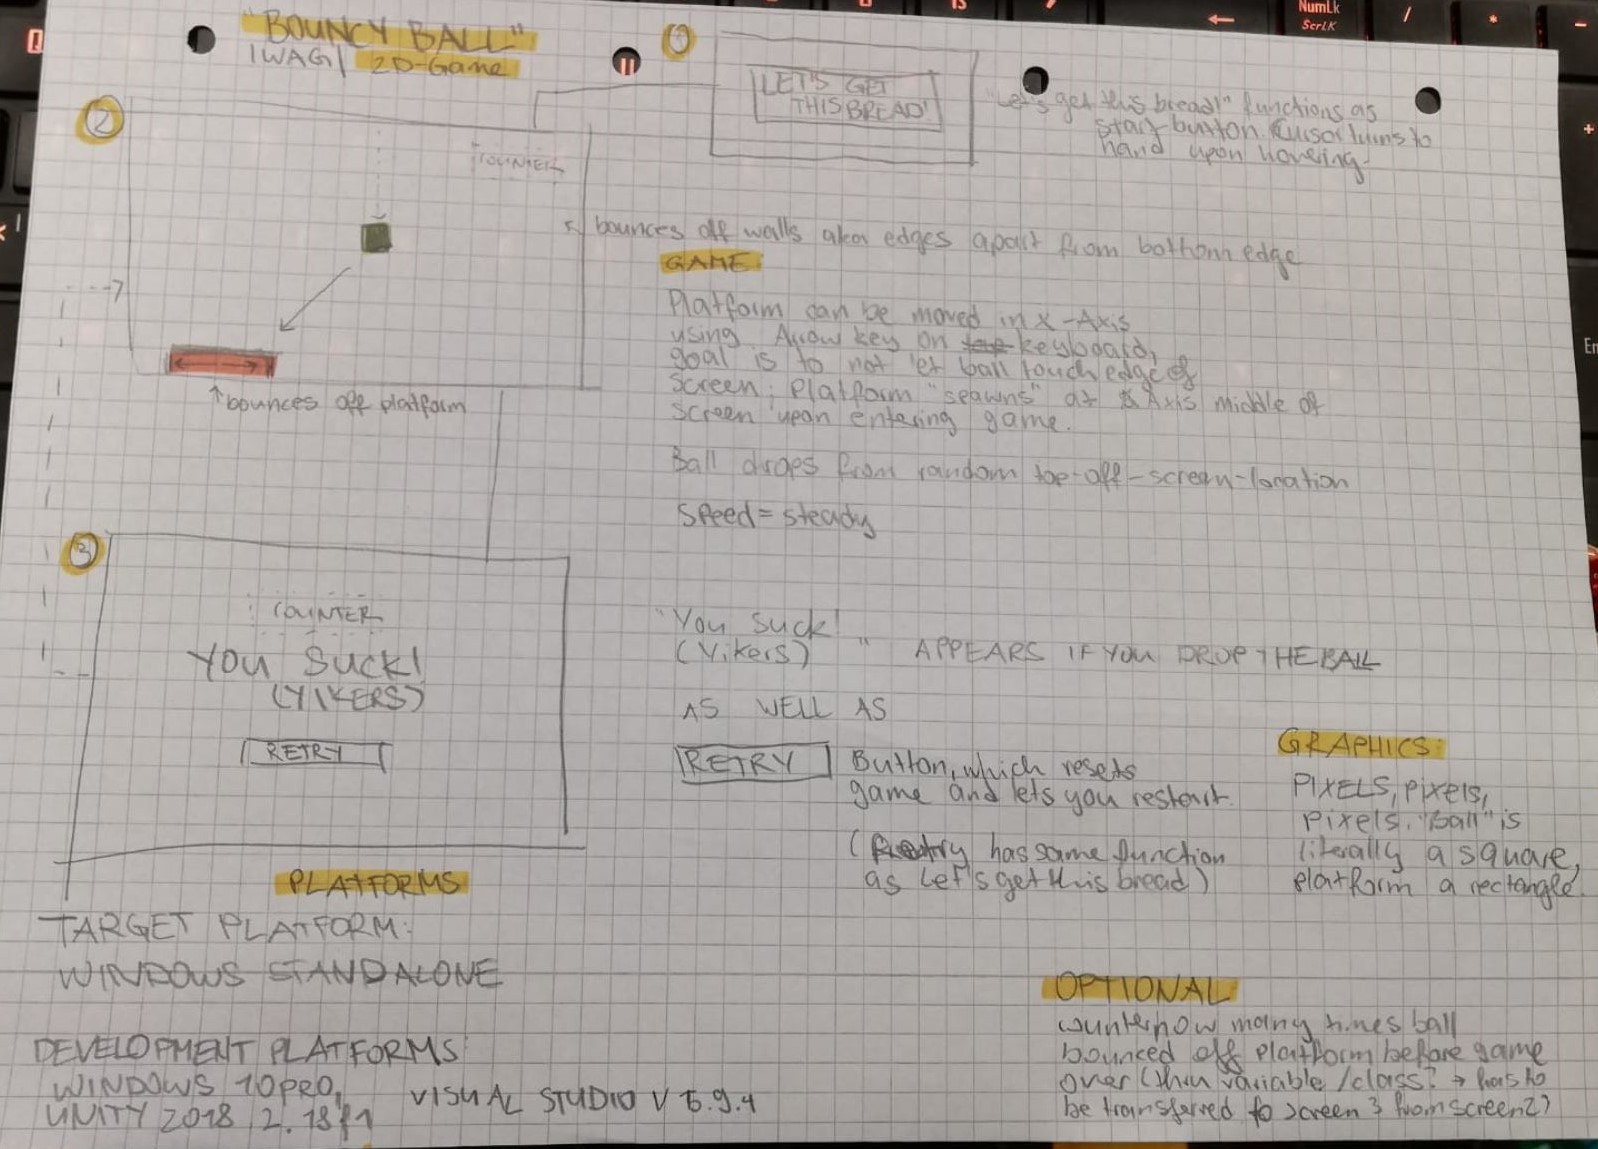 "BOUNCY BALL"
|WAG| 2D-Game
1
LET'S GET
THIS BREAD!
"Let's get this bread!" functions as
start button. Cursor turns to
hand upon hovering.
2
COUNTER
bounces off walls aka edges apart from bottom edge
GAME:
Platform can be moved in X-Axis
using Arrow key on keyboard,
goal is to not let ball touch edge of
screen; Platform "spawns" at X Axis middle of
screen upon entering game.
↑bounces off platform
Ball drops from random top-off-screen-location
Speed = steady
3
COUNTER
YOU SUCK!
(YIKERS)
RETRY
"You suck!
(Yikers) " APPEARS IF YOU DROP THE BALL
AS WELL AS
RETRY Button, which resets
game and lets you restart.
(Retry has same function
as Let's get this bread)
GRAPHICS:
PIXELS, pixels,
pixels. "Ball" is
literally a square,
platform a rectangle.
PLATFORMS
TARGET PLATFORM:
WINDOWS STANDALONE
DEVELOPMENT PLATFORMS:
WINDOWS 10 PRO,
UNITY 2018.2.18f1
VISUAL STUDIO V 15.9.4
OPTIONAL
counter how many times ball
bounced off platform before game
over (thru variable/class? → has to
be transferred to screen 3 from screen 2)
NumLk
ScrLK
/
*
-
+